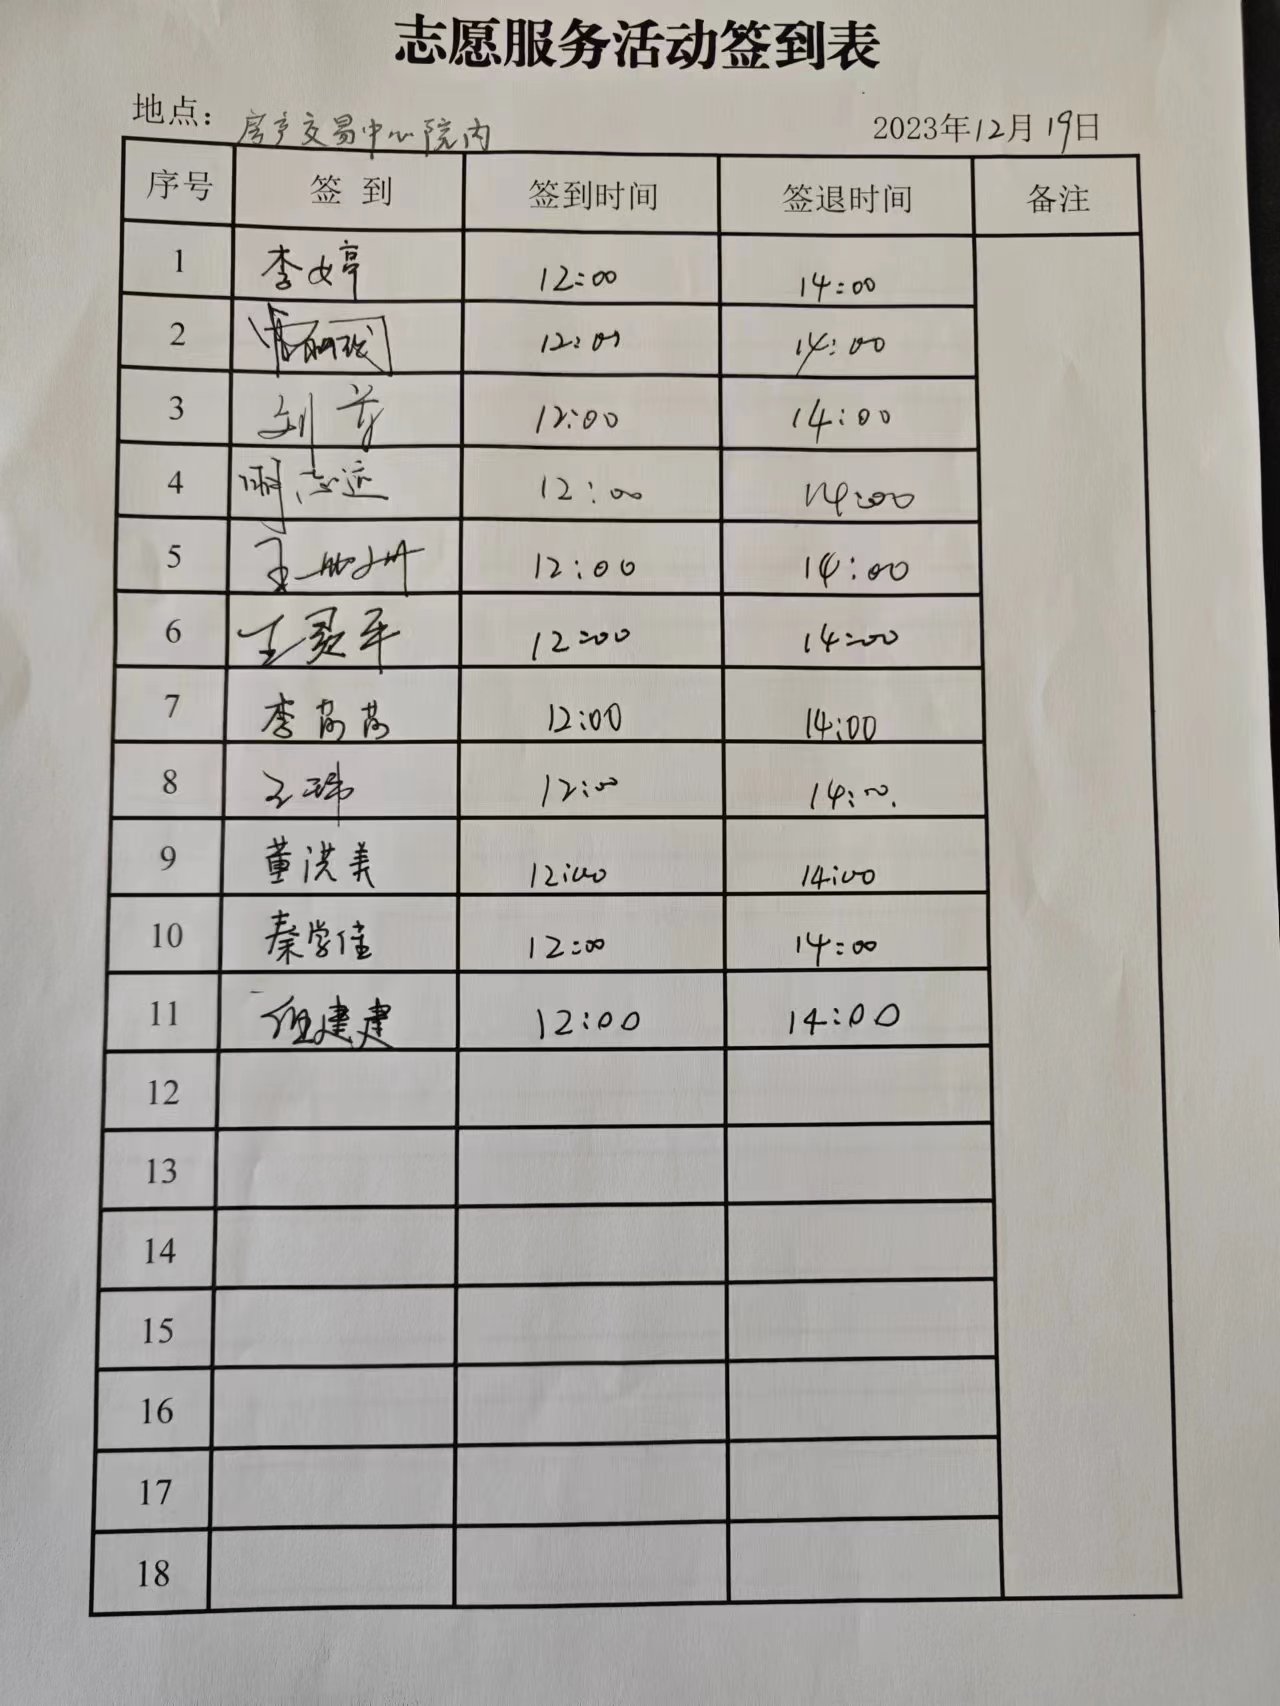 志愿服务活动签到表
地点：房产交易中心院内 2023年12月19日
序号 签到 签到时间 签退时间 备注
1 李婷 12:00 14:00
2 12:00 14:00
3 刘芳 12:00 14:00
4 志远 12:00 14:00
5 王 12:00 14:00
6 王灵平 12:00 14:00
7 李茜茜 12:00 14:00
8 王玮 12:00 14:00
9 董洪美 12:00 14:00
10 秦学佳 12:00 14:00
11 建建 12:00 14:00
12
13
14
15
16
17
18